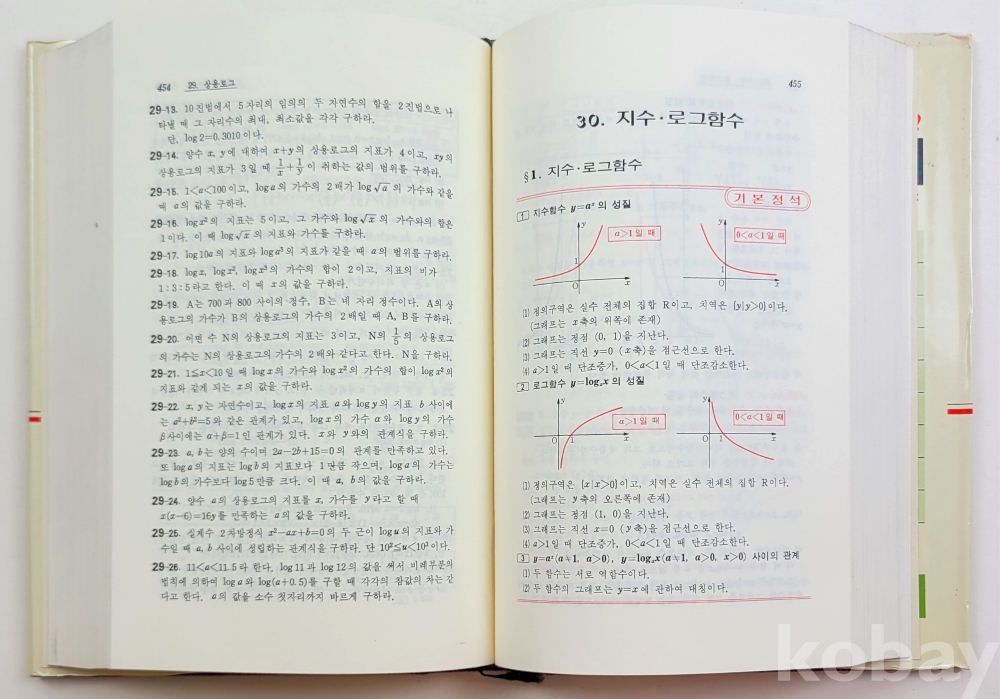 454 29. 상용로그
29-13. 10진법에서 5자리의 임의의 두 자연수의 합을 2진법으로 나
타낼 때 그 자리수의 최대, 최소값을 각각 구하라.
단, log2=0.3010이다.
29-14. 양수 x, y에 대하여 x+y의 상용로그의 지표가 4이고, xy의
상용로그의 지표가 3일 때 1/x+1/y이 취하는 값의 범위를 구하라.
29-15. 1<a<100이고, loga의 가수의 2배가 log√a의 가수와 같을
때 a의 값을 구하라.
29-16. logx²의 지표는 5이고, 그 가수와 log√x의 가수와의 합은
1이다. 이 때 log√x의 지표와 가수를 구하라.
29-17. log10a의 지표와 loga³의 지표가 같을 때 a의 범위를 구하라.
29-18. logx, logx², logx³의 가수의 합이 2이고, 지표의 비가
1:3:5라고 한다. 이 때 x의 값을 구하라.
29-19. A는 700과 800 사이의 정수, B는 네 자리 정수이다. A의 상
용로그의 가수가 B의 상용로그의 가수의 2배일 때 A, B를 구하라.
29-20. 어떤 수 N의 상용로그의 지표는 3이고, N의 1/5의 상용로그
의 가수는 N의 상용로그의 가수의 2배와 같다고 한다. N을 구하라.
29-21. 1≦x<10일 때 logx의 가수와 logx²의 가수의 합이 logx²의
지표와 같게 되는 x의 값을 구하라.
29-22. x, y는 자연수이고, logx의 지표 a와 logy의 지표 b 사이에
는 a²+b²=5와 같은 관계가 있고, logx의 가수 α와 logy의 가수
β사이에는 α+β=1인 관계가 있다. x와 y와의 관계식을 구하라.
29-23. a, b는 양의 수이며 2a-2b+15=0의 관계를 만족하고 있다.
또 loga의 지표는 logb의 지표보다 1만큼 작으며, loga의 가수는
logb의 가수보다 log5만큼 크다. 이 때 a, b의 값을 구하라.
29-24. 양수 a의 상용로그의 지표를 x, 가수를 y라고 할 때
x(x-6)=16y를 만족하는 a의 값을 구하라.
29-25. 실계수 2차방정식 x²-ax+b=0의 두 근이 logu의 지표와 가
수일 때 a, b 사이에 성립하는 관계식을 구하라. 단 10²≦u<10³이다.
29-26. 11<a<11.5라 한다. log11과 log12의 값을 써서 비례부분의
법칙에 의하여 loga와 log(a+0.5)를 구할 때 각각의 참값의 차는 같
다고 한다. a의 값을 소수 첫자리까지 바르게 구하라.
455
30. 지수·로그함수
§1. 지수·로그함수
기본정석
1 지수함수 y=aˣ의 성질
y
a>1일 때
1
O
x
y
0<a<1일 때
1
O
x
(1) 정의구역은 실수 전체의 집합 R이고, 치역은 {y|y>0}이다.
(그래프는 x축의 위쪽에 존재)
(2) 그래프는 정점 (0, 1)을 지난다.
(3) 그래프는 직선 y=0 (x축)을 점근선으로 한다.
(4) a>1일 때 단조증가, 0<a<1일 때 단조감소한다.
2 로그함수 y=logₐx의 성질
y
a>1일 때
O
1
x
y
0<a<1일 때
O
1
x
(1) 정의구역은 {x|x>0}이고, 치역은 실수 전체의 집합 R이다.
(그래프는 y축의 오른쪽에 존재)
(2) 그래프는 정점 (1, 0)을 지난다.
(3) 그래프는 직선 x=0 (y축)을 점근선으로 한다.
(4) a>1일 때 단조증가, 0<a<1일 때 단조감소한다.
3 y=aˣ(a≠1, a>0), y=logₐx(a≠1, a>0, x>0) 사이의 관계
(1) 두 함수는 서로 역함수이다.
(2) 두 함수의 그래프는 y=x에 관하여 대칭이다.
kobay